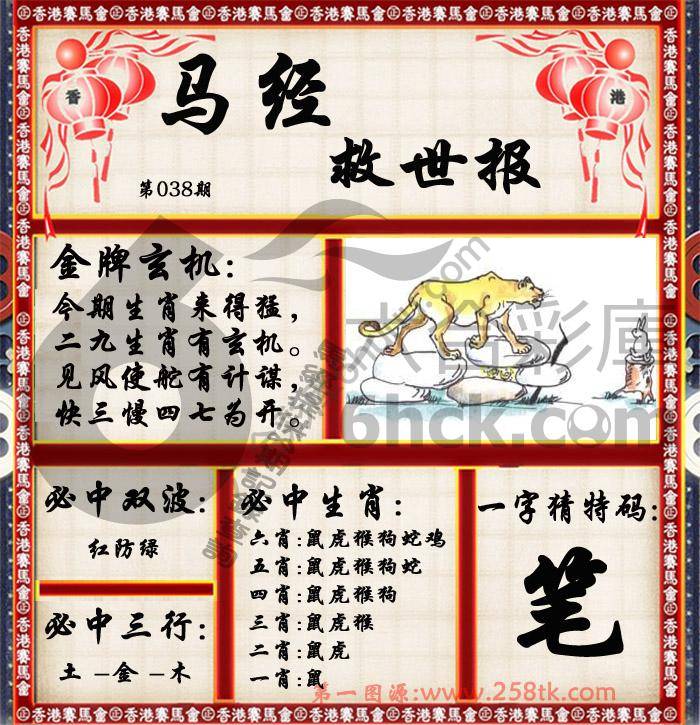 香港賽馬會
香
港
马经
救世报
第038期
金牌玄机:
今期生肖来得猛，
二九生肖有玄机。
见风使舵有计谋，
快三慢四七为开。
六合彩庫
6hck.com
必中双波:
红防绿
必中三行:
土-金-木
必中生肖:
六肖:鼠虎猴狗蛇鸡
五肖:鼠虎猴狗蛇
四肖:鼠虎猴狗
三肖:鼠虎猴
二肖:鼠虎
一肖:鼠
一字猜特码:
笔
第一图源:www.258tk.com